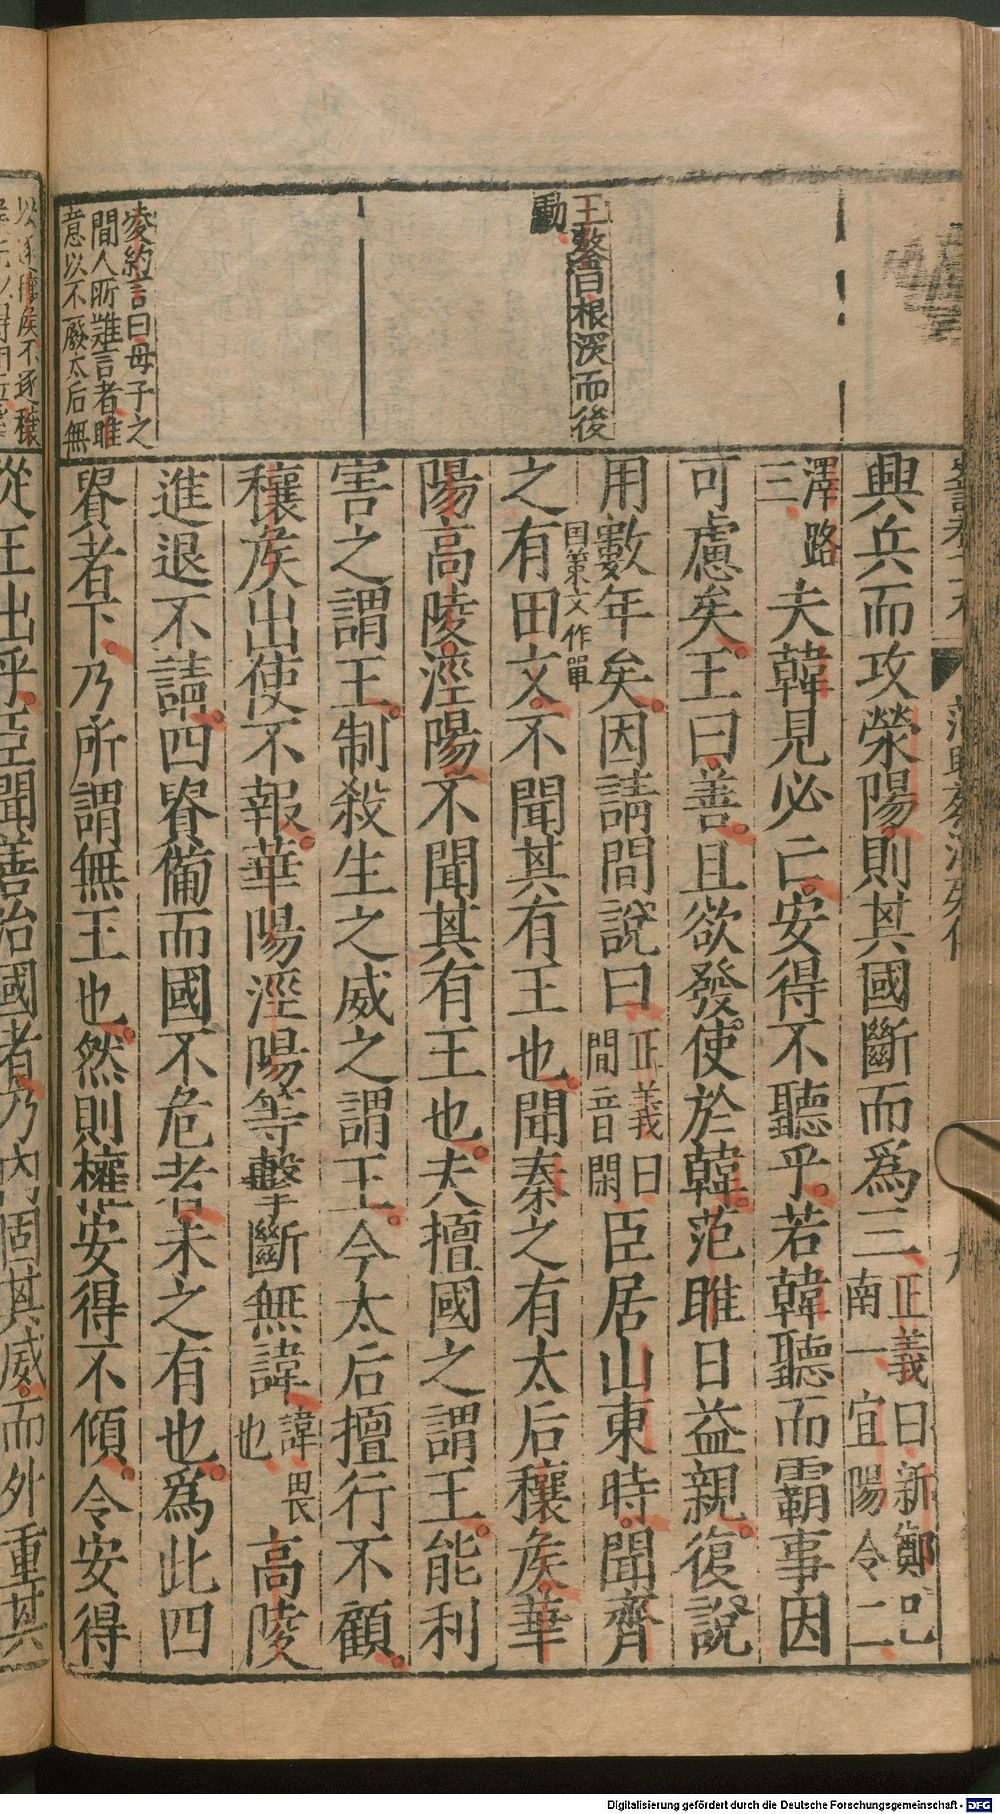 王鏊曰根深而後
動
凌約言曰母子之
間人所難言者雎
意以不廢太后無
興兵而攻榮陽則其國斷而為三正義曰新鄭已
南一宜陽令二
澤路
三夫韓見必亡安得不聽乎若韓聽而霸事因
可慮矣王曰善且欲發使於韓范雎日益親復說
用數年矣因請間說曰正義曰
間音閑臣居山東時聞齊
之有田文國策文作單不聞其有王也聞秦之有太后穰侯華
陽高陵涇陽不聞其有王也夫擅國之謂王能利
害之謂王制殺生之威之謂王今太后擅行不顧
穰侯出使不報華陽涇陽等擊斷無諱諱畏
也高陵
進退不請四貴備而國不危者未之有也為此四
貴者下乃所謂無王也然則權安得不傾令安得
從王出乎臣聞善治國者乃內固其威而外重其
Digitalisierung gefördert durch die Deutsche Forschungsgemeinschaft - DFG